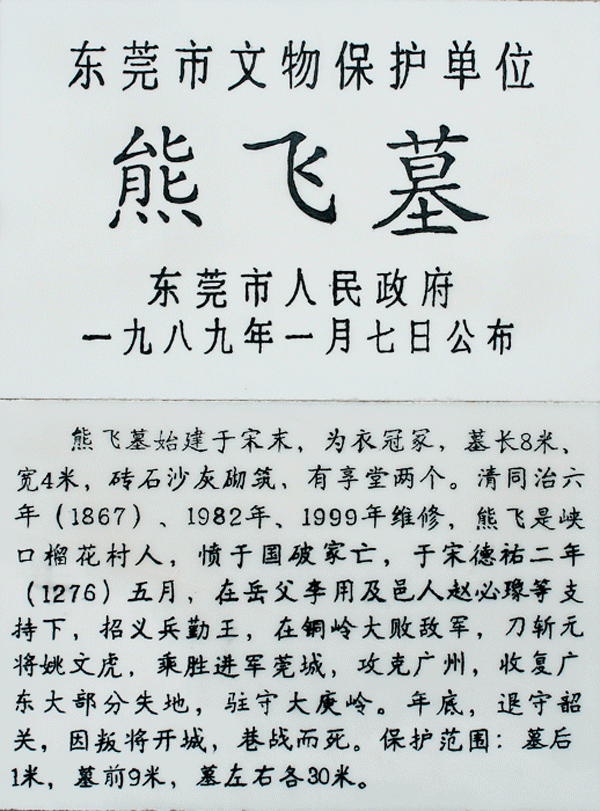 东莞市文物保护单位
熊飞墓
东莞市人民政府
一九八九年一月七日公布
熊飞墓始建于宋末，为衣冠冢，墓长8米、
宽4米，砖石沙灰砌筑，有享堂两个。清同治六
年（1867）、1982年、1999年维修，熊飞是峡
口榴花村人，愤于国破家亡，于宋德祐二年
（1276）五月，在岳父李用及邑人赵必瑑等支
持下，招义兵勤王，在铜岭大败敌军，刀斩元
将姚文虎，乘胜进军莞城，攻克广州，收复广
东大部分失地，驻守大庾岭。年底，退守韶
关，因叛将开城，巷战而死。保护范围：墓后
1米，墓前9米，墓左右各30米。